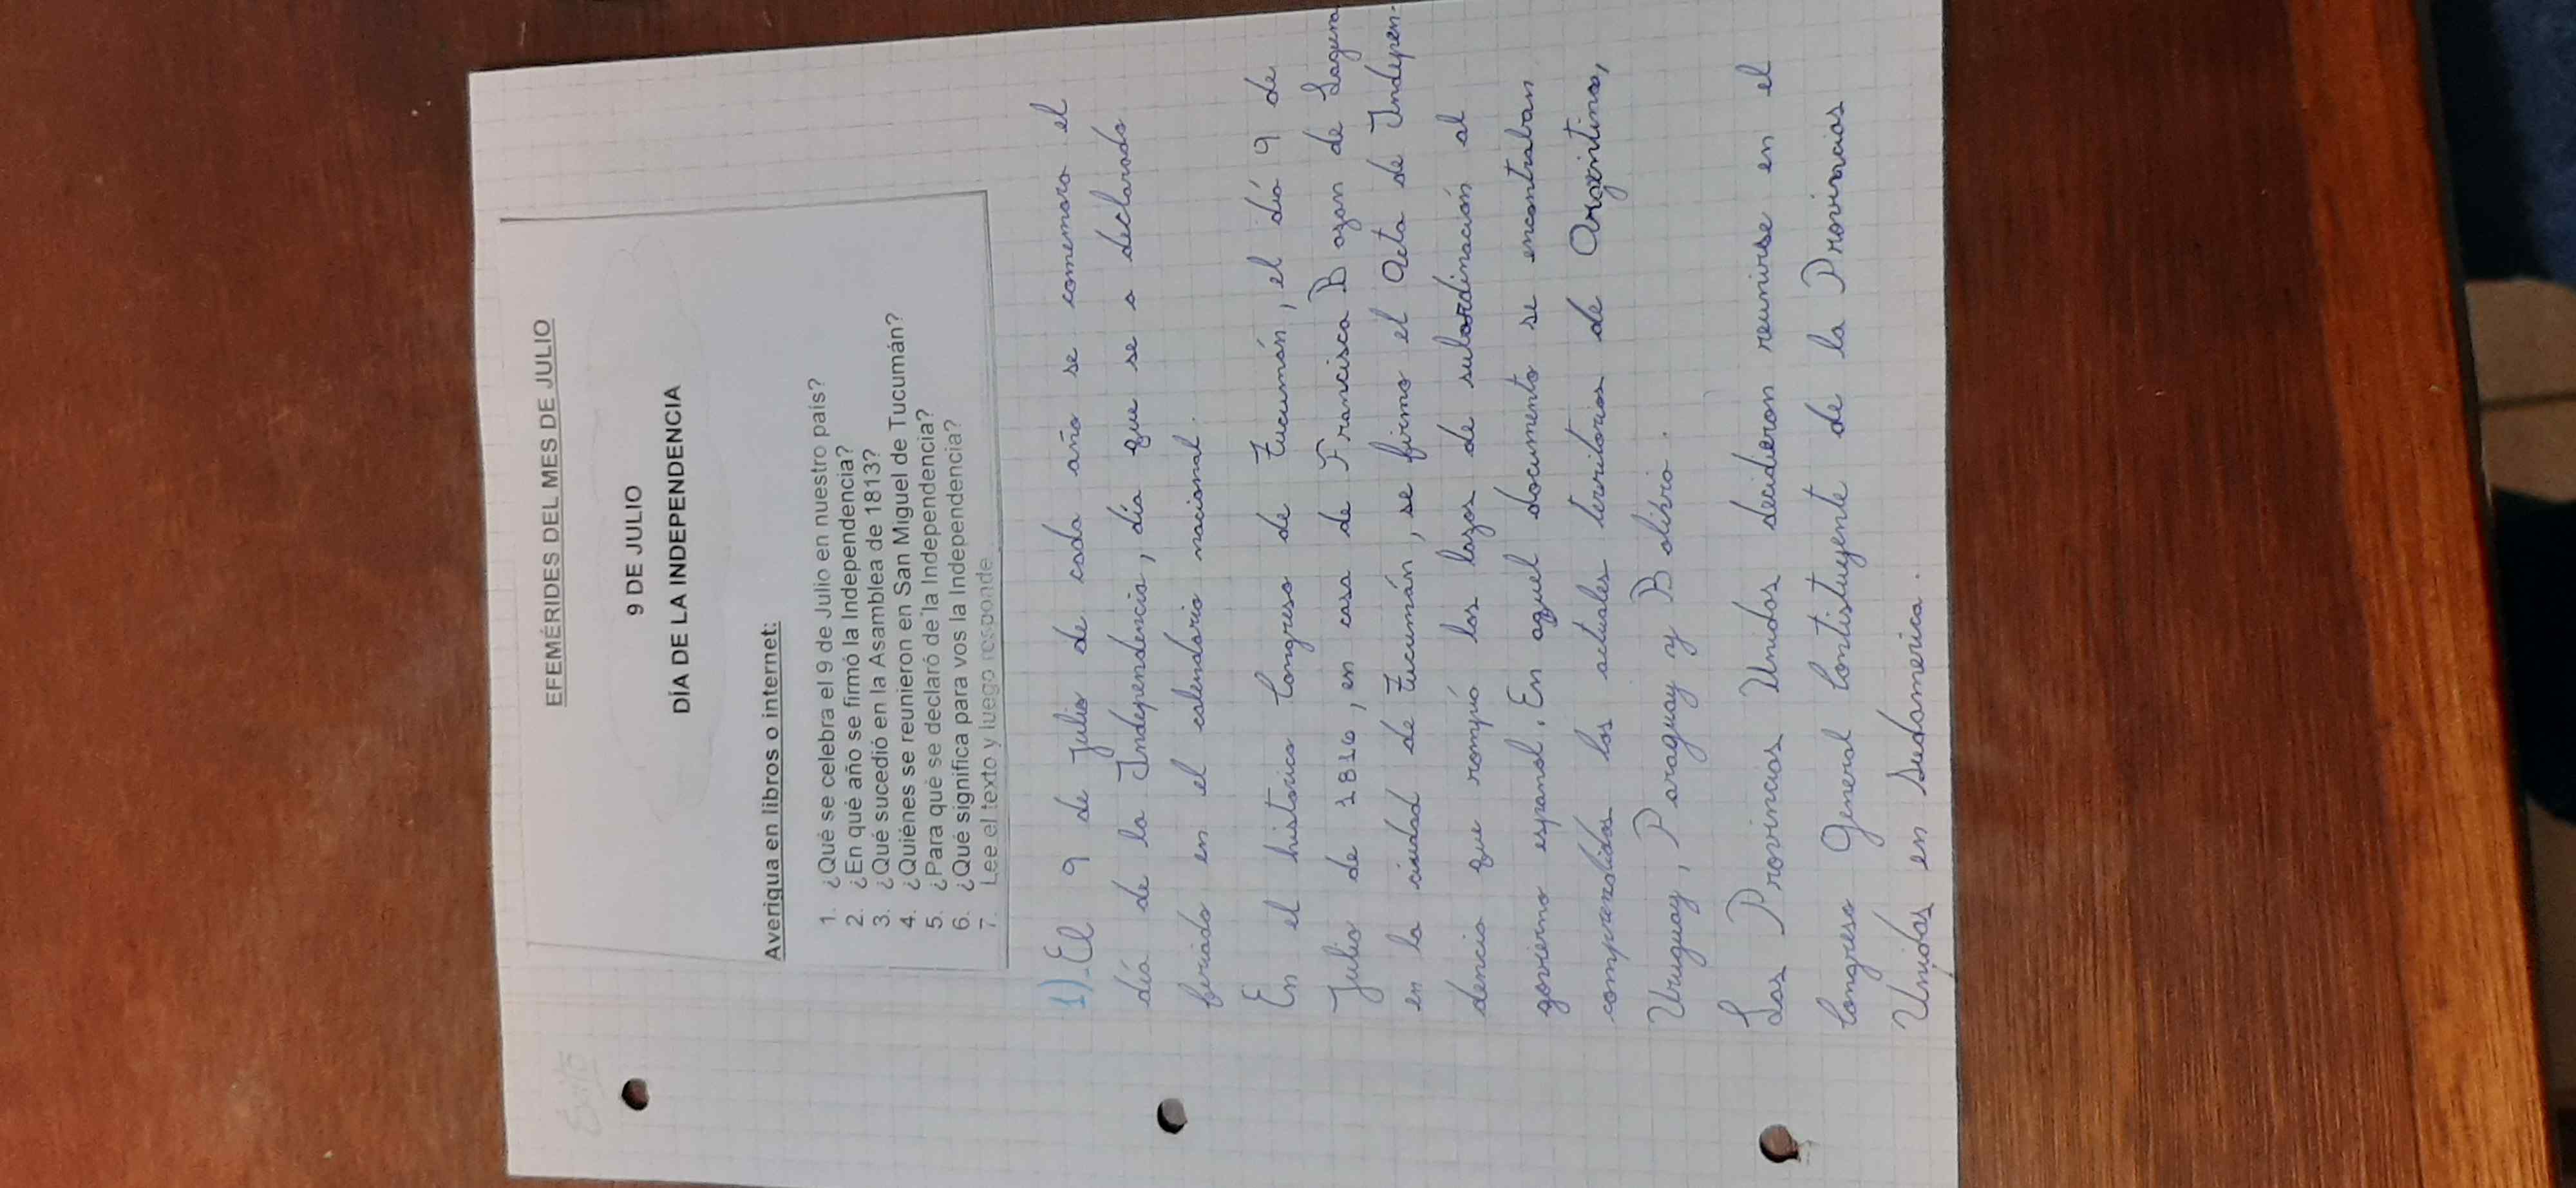 EFEMÉRIDES DEL MES DE JULIO
9 DE JULIO
DÍA DE LA INDEPENDENCIA
Averigua en libros o internet:
1. ¿Qué se celebra el 9 de Julio en nuestro país?
2. ¿En qué año se firmó la Independencia?
3. ¿Qué sucedió en la Asamblea de 1813?
4. ¿Quiénes se reunieron en San Miguel de Tucumán?
5. ¿Para qué se declaró de la Independencia?
6. ¿Qué significa para vos la Independencia?
7. Lee el texto y luego responde
1) El 9 de Julio de cada año se comemora el
día de la Independencia, día que se a declarado
feriado en el calendario nacional.
En el histórico Congreso de Tucumán, el día 9 de
Julio de 1816, en casa de Francisca Bazan de Laguna
en la ciudad de Tucumán, se firmo el Acta de Indepen-
dencia que rompió los lazos de subordinación al
govierno espanol. En aquel documento se encontraban
comprendidos los actuales territorios de Argentina,
Uruguay, Paraguay y Bolibia.
Las Provincias Unidas decidieron reunirse en el
Congreso General Contistuyente de la Provincias
Unidas en Sudamerica.